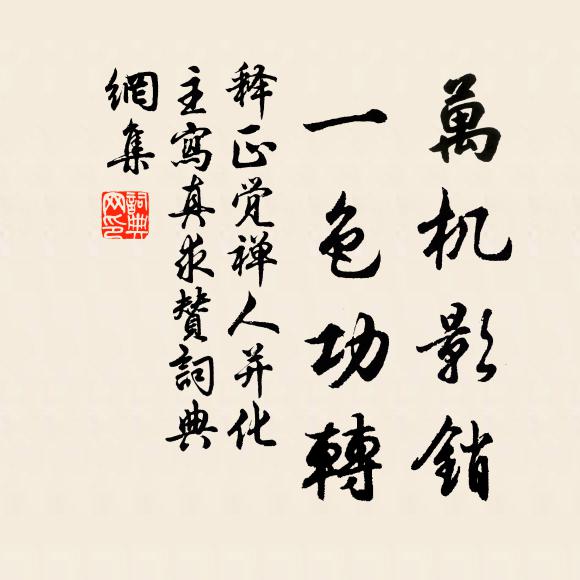 萬机影銷
一色功轉
释正觉禅人并化
主寫真求贊詞典
網集
詞典
网印